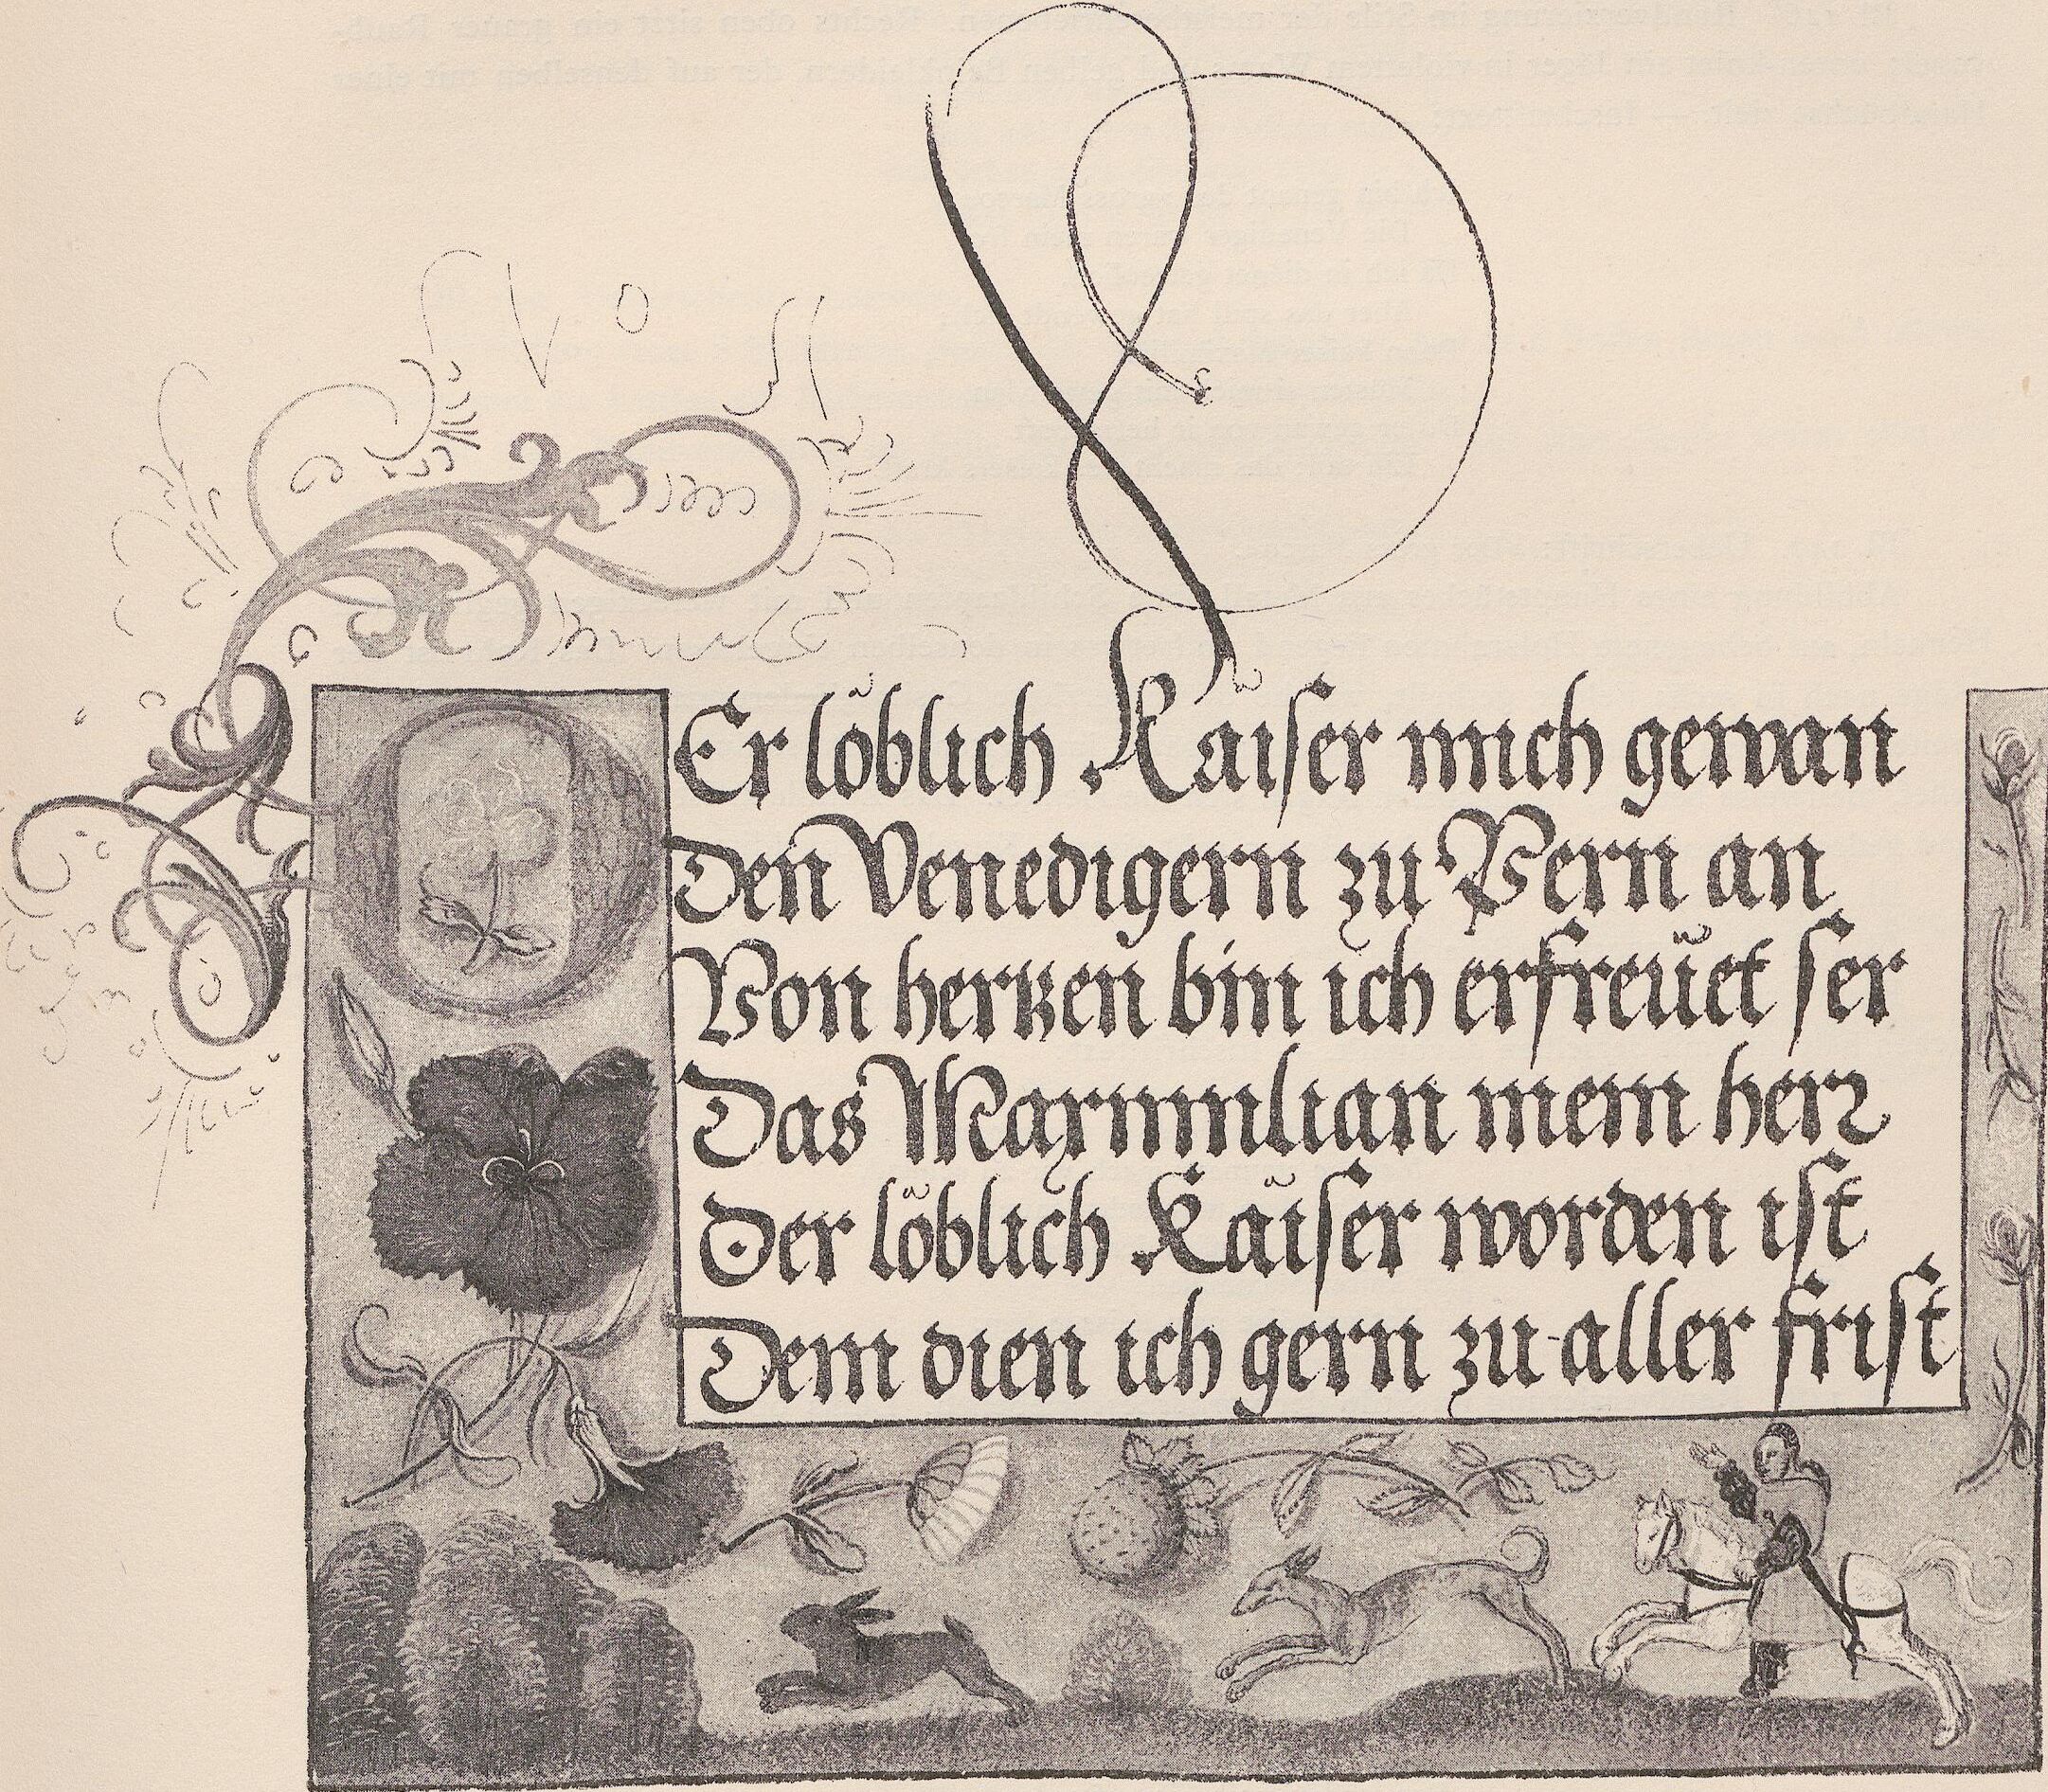 DEr löblich Kaiser mich gewan
Den Venedigern zu Pern an
Von hertzen bin ich erfreüet ser
Das Maxımılian mein herr
Der löblich Kaiser worden ist
Dem dien ich gern zu aller frist